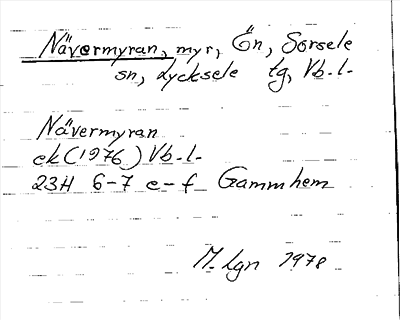 Nävermyran, myr, Ön, Sorsele
sn, Lycksele tg, Vb.l.
Nävermyran
ek (1976) Vb.l.
23H 6-7 e-f Gammhem
M. Lgn 1978